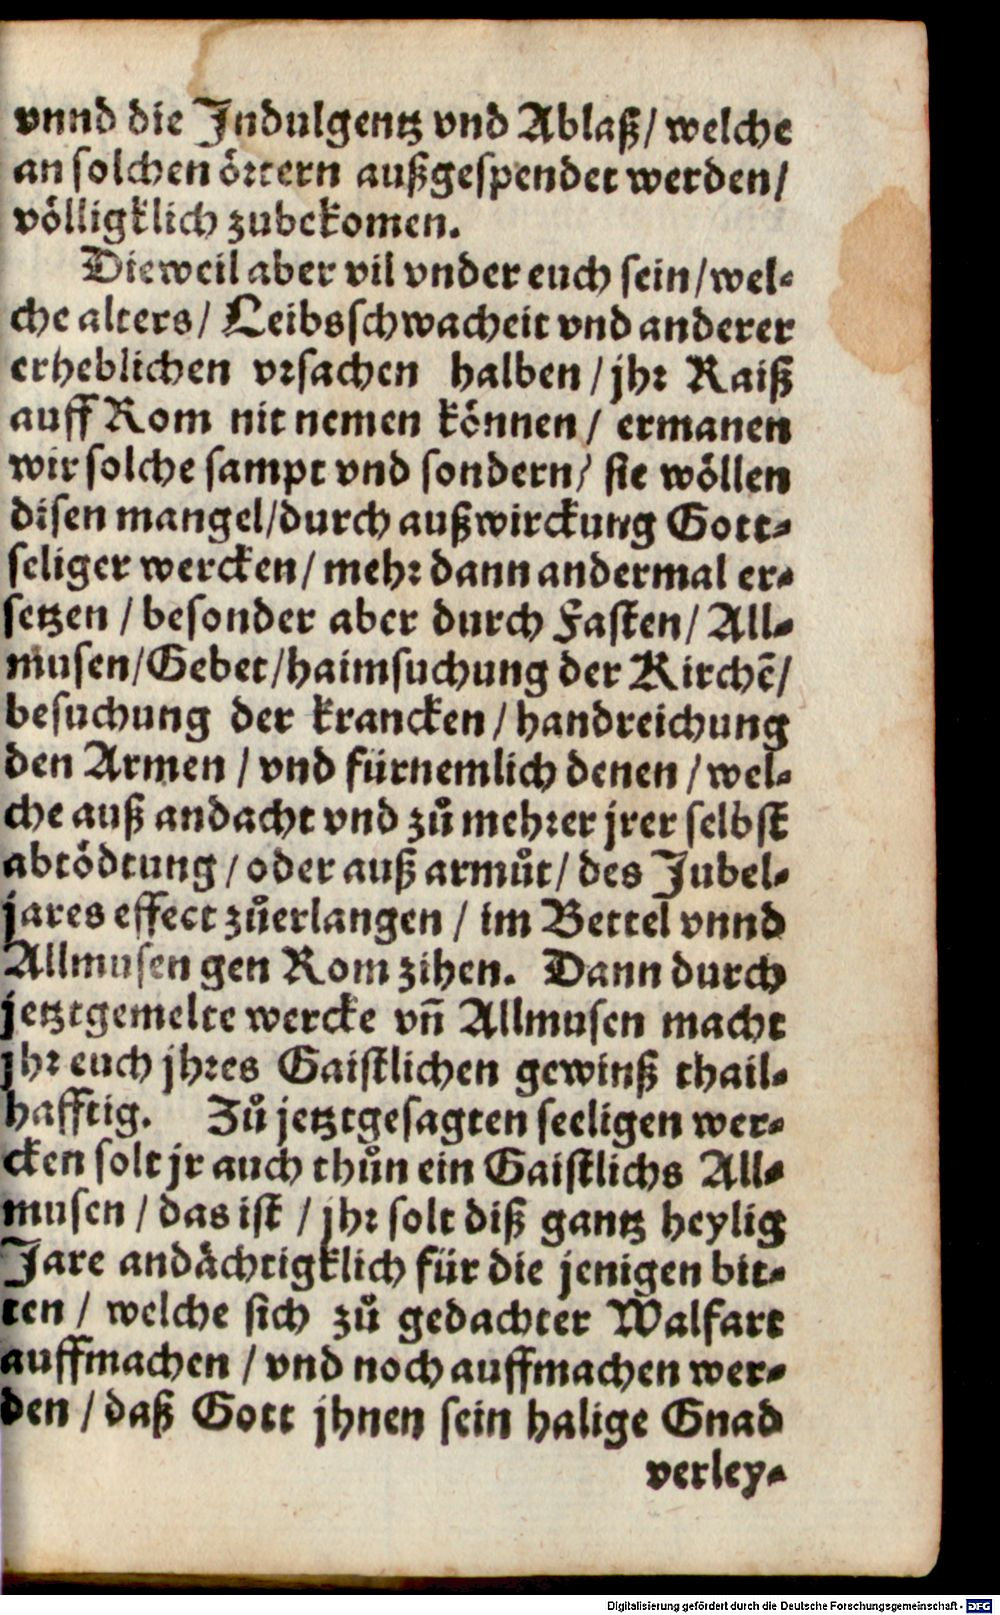 vnnd die Indulgentz vnd Ablaß/ welche
an solchen örtern außgespendet werden/
völligklich zubekomen.
Dieweil aber vil vnder euch sein/wel-
che alters/ Leibsschwacheit vnd anderer
erheblichen vrsachen halben / jhr Raiß
auff Rom nit nemen können / ermanen
wir solche sampt vnd sondern/ sie wöllen
disen mangel/durch außwirckung Gott-
seliger wercken / mehr dann andermal er-
setzen / besonder aber durch Fasten/ All-
musen/Gebet/haimsuchung der Kirchē/
besuchung der krancken / handreichung
den Armen / vnd fürnemlich denen / wel-
che auß andacht vnd zů mehrer jrer selbst
abtödtung / oder auß armůt/ des Jubel-
jares effect zůerlangen / im Bettel vnnd
Allmusen gen Rom zihen. Dann durch
jetztgemelte wercke vñ Allmusen macht
jhr euch jhres Gaistlichen gewinß thail-
hafftig. Zů jetztgesagten seeligen wer-
cken solt jr auch thůn ein Gaistlichs All-
musen / das ist / jhr solt diß gantz heylig
Jare andächtigklich für die jenigen bit-
ten / welche sich zů gedachter Walfart
auffmachen / vnd noch auffmachen wer-
den / daß Gott jhnen sein halige Gnad
verley-
Digitalisierung gefördert durch die Deutsche Forschungsgemeinschaft - DFG